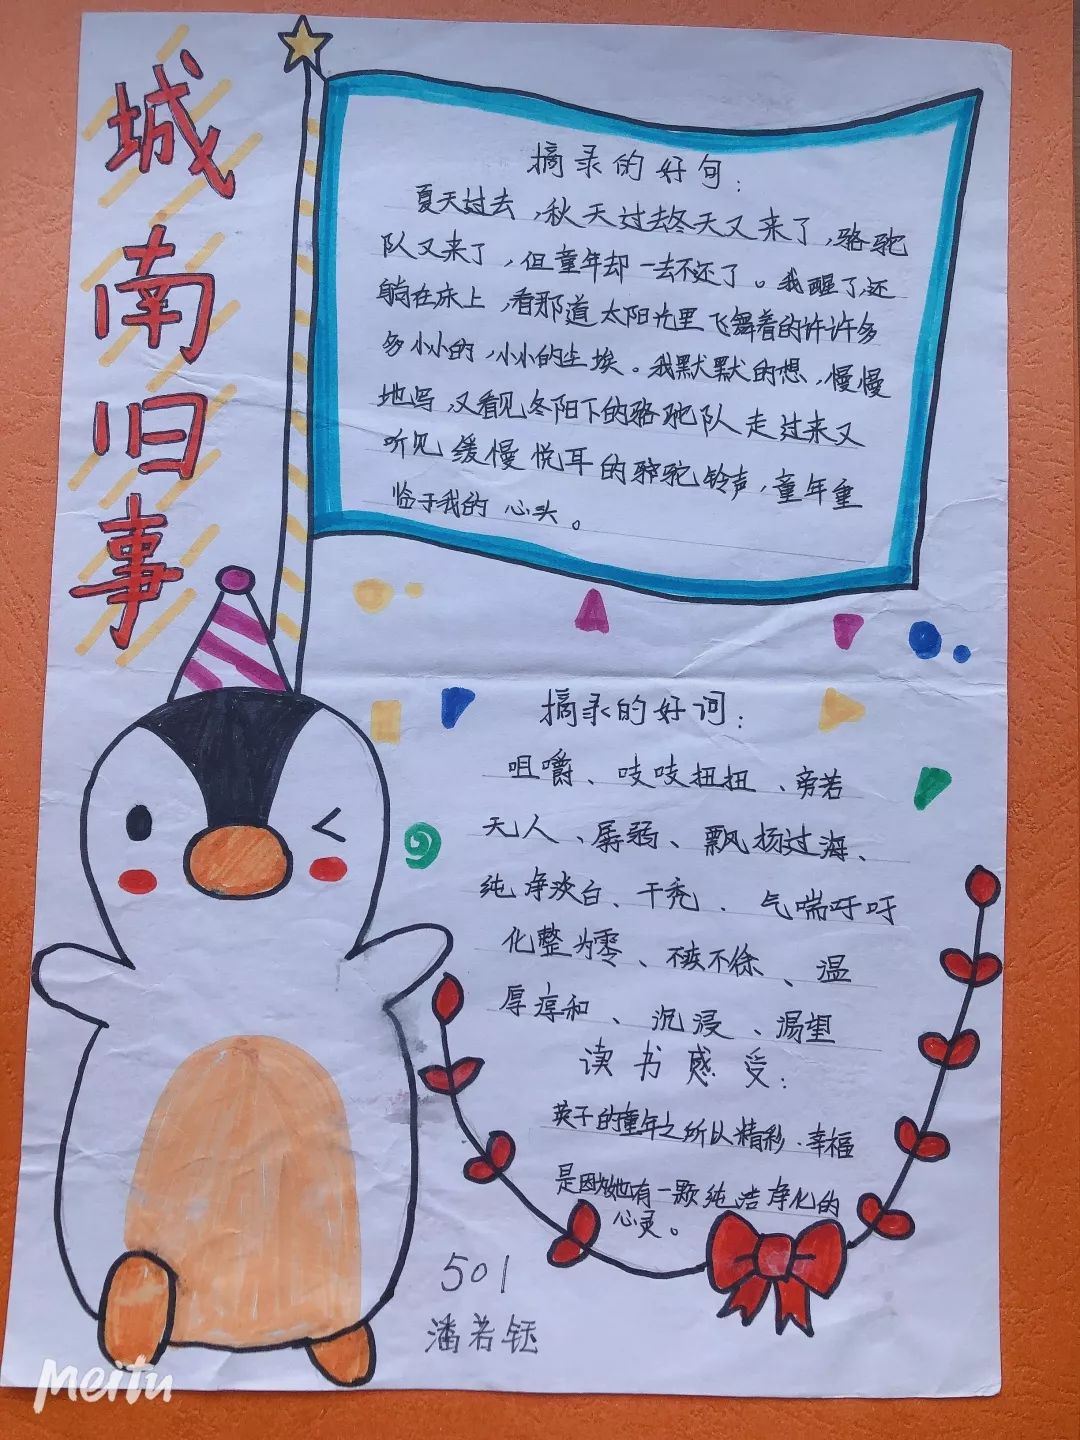 城南旧事
摘录的好句：
夏天过去，秋天过去冬天又来了，骆驼
队又来了，但童年却一去不还了。我醒了，还
躺在床上，看那道太阳光里飞舞着的许许多
多小小的，小小的尘埃。我默默的想，慢慢
地写，又看见冬阳下的骆驼队走过来又
听见缓慢悦耳的骆驼铃声，童年重
临于我的心头。
摘录的好词：
咀嚼、吱吱扭扭、旁若
无人、孱弱、飘扬过海、
纯净淡白、干秃、气喘吁吁
化整为零、不疾不徐、温
厚淳和、沉浸、渴望
读书感受：
英子的童年之所以精彩、幸福
是因为她有一颗纯洁净化的
心灵。
501
潘若钰
Meitu